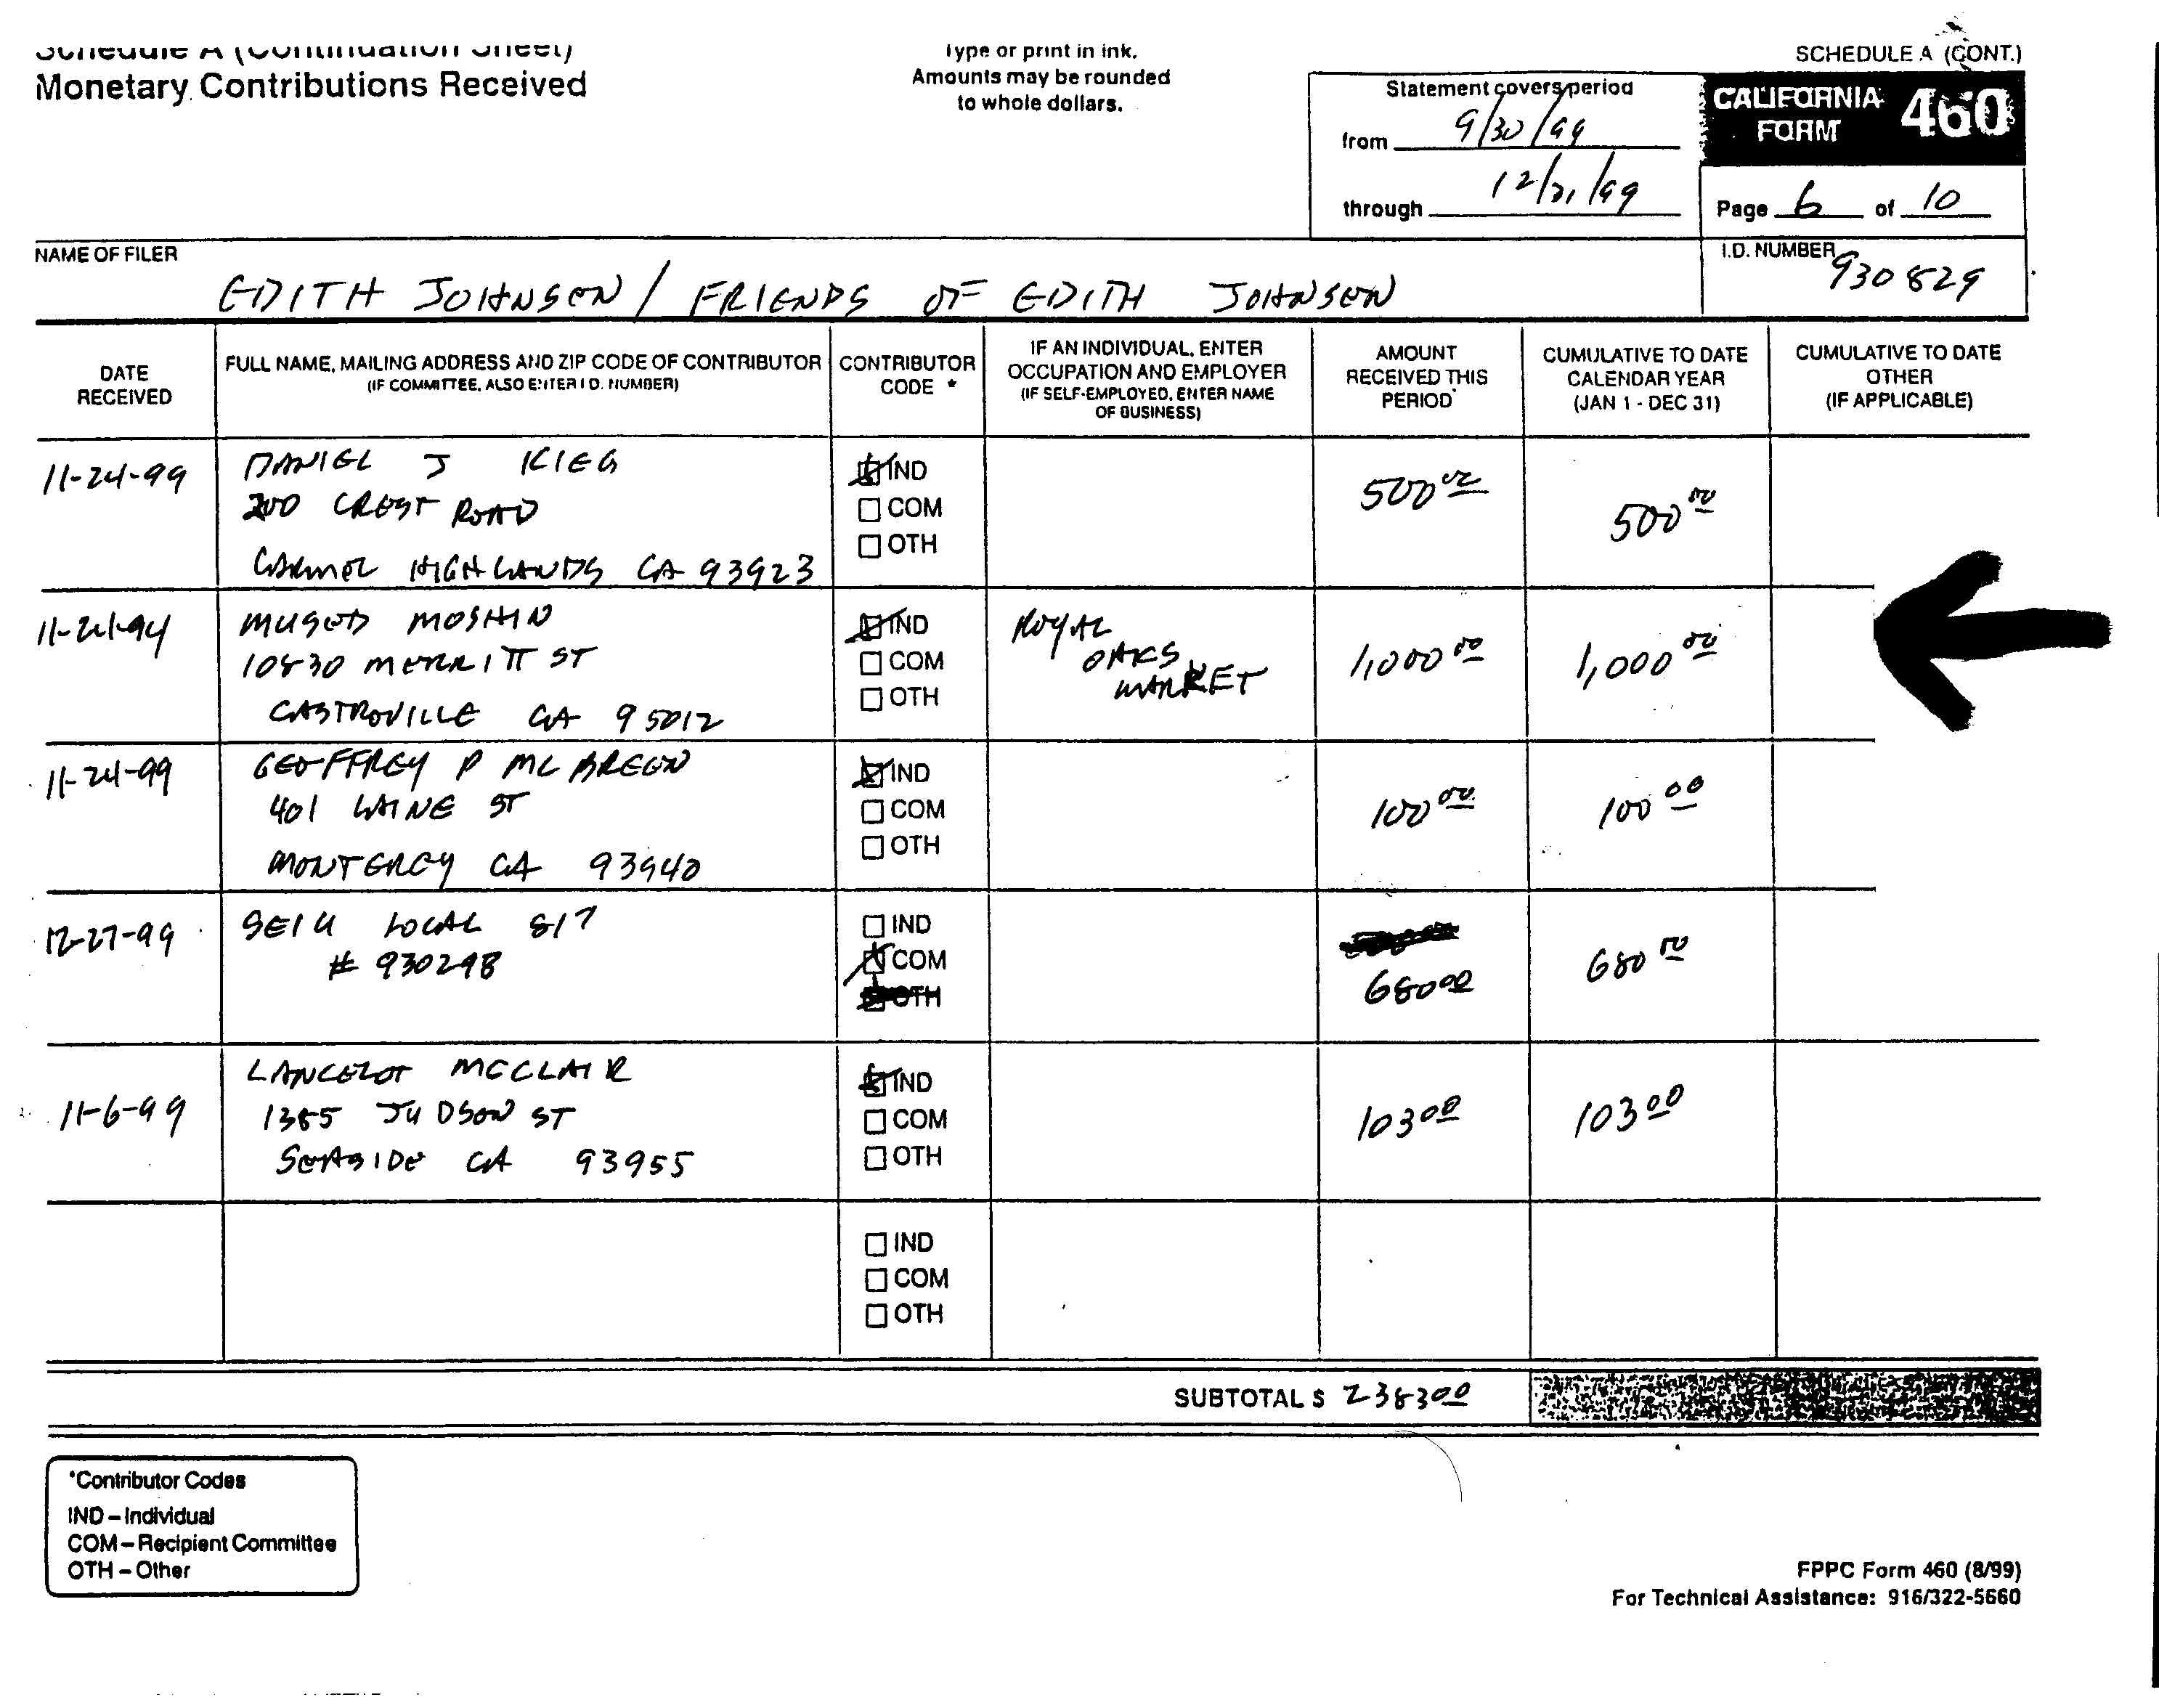 Schedule A (Continuation Sheet)
Monetary Contributions Received
Type or print in ink.
Amounts may be rounded
to whole dollars.
SCHEDULE A (CONT.)
Statement covers period
from 9/30/99
through 12/31/99
CALIFORNIA
FORM
460
Page 6 of 10
NAME OF FILER
EDITH JOHNSEN / FRIENDS OF EDITH JOHNSEN
I.D. NUMBER
930829
DATE
RECEIVED
FULL NAME, MAILING ADDRESS AND ZIP CODE OF CONTRIBUTOR
(IF COMMITTEE, ALSO ENTER I.D. NUMBER)
CONTRIBUTOR
CODE *
IF AN INDIVIDUAL, ENTER
OCCUPATION AND EMPLOYER
(IF SELF-EMPLOYED, ENTER NAME
OF BUSINESS)
AMOUNT
RECEIVED THIS
PERIOD
CUMULATIVE TO DATE
CALENDAR YEAR
(JAN 1 - DEC 31)
CUMULATIVE TO DATE
OTHER
(IF APPLICABLE)
11-24-99
DANIEL J KIEG
200 CREST ROAD
CARMEL HIGHLANDS CA 93923
IND
COM
OTH
500 00
500 00
MUSED MOSHIN
10830 MERRITT ST
CASTROVILLE CA 95012
IND
COM
OTH
ROYAL
OAKS
MARKET
1,000 00
1,000 00
11-24-99
GEOFFREY P MC BREEN
401 LAINE ST
MONTEREY CA 93940
IND
COM
OTH
100 00
100 00
12-27-99
SEIU LOCAL 817
# 930298
IND
COM
OTH
680 00
680 00
11-6-99
LANCELOT MCCLAIR
1385 JUDSON ST
SEASIDE CA 93955
IND
COM
OTH
103 00
103 00
IND
COM
OTH
SUBTOTAL $ 2383 00
*Contributor Codes
IND – Individual
COM – Recipient Committee
OTH – Other
FPPC Form 460 (8/99)
For Technical Assistance: 916/322-5660